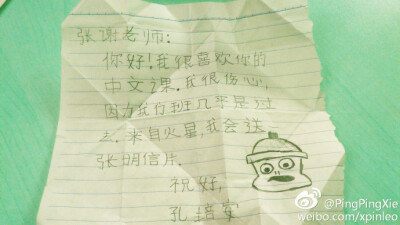 张谢老师:
你好!我很喜欢你的
中文课.我很伤心,
因为我们班几乎是过
去.来自火星,我会送
张明信片.
祝好,
孔培军
@PingPingXie
weibo.com/xpinleo